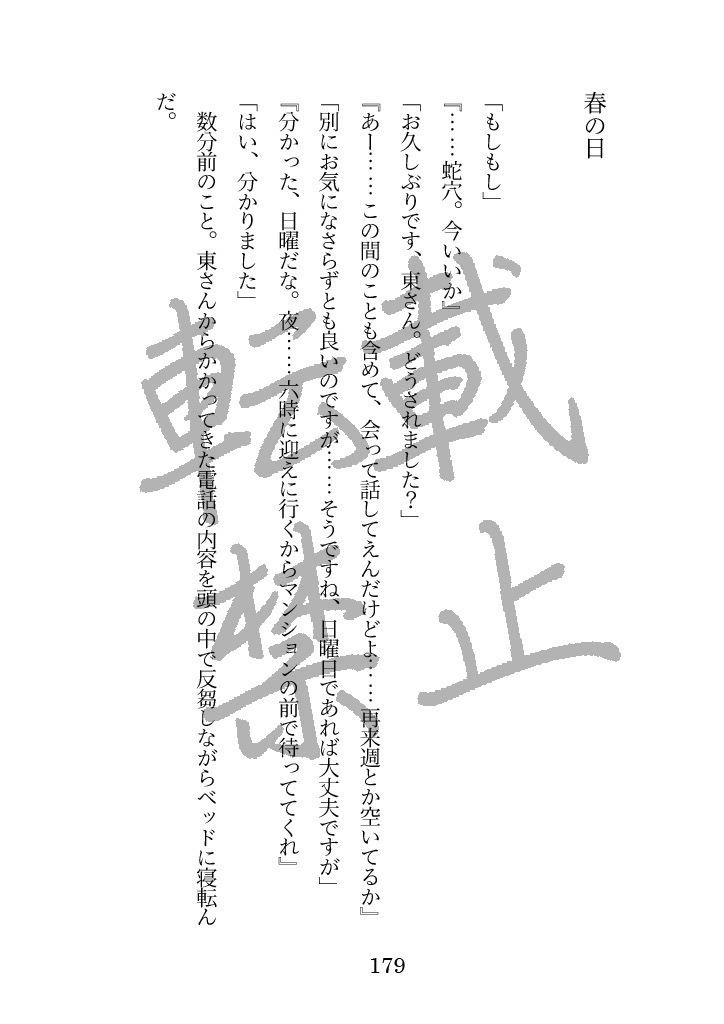 春の日
「もしもし」
『……蛇穴。今いいか』
「お久しぶりです、東さん。どうされました?」
『あー……この間のことも含めて、会って話してえんだけどよ……再来週とか空いてるか』
「別にお気になさらずとも良いのですが……そうですね、日曜日であれば大丈夫ですが」
『分かった、日曜だな。夜……六時に迎えに行くからマンションの前で待っててくれ』
「はい、分かりました」
数分前のこと。東さんからかかってきた電話の内容を頭の中で反芻しながらベッドに寝転ん
だ。
転載
禁止
179